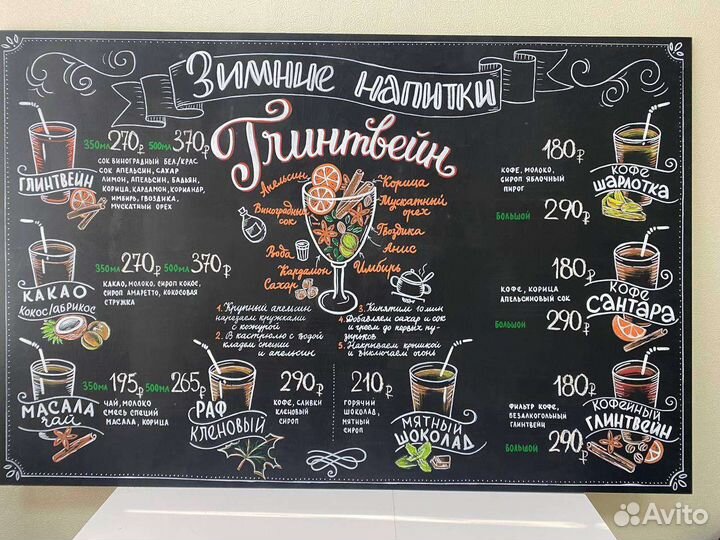 Зимние напитки
Глинтвейн
350мл 270₽ 500мл 370₽
ГЛИНТВЕЙН
СОК ВИНОГРАДНЫЙ БЕЛ/КРАС
СОК АПЕЛЬСИН, САХАР
ЛИМОН, АПЕЛЬСИН, БАДЬЯН,
КОРИЦА, КАРДАМОН, КОРИАНДР,
ИМБИРЬ, ГВОЗДИКА,
МУСКАТНЫЙ ОРЕХ
350мл 270₽ 500мл 370₽
КАКАО
КОКОС/АБРИКОС
КАКАО, МОЛОКО, СИРОП КОКОС,
СИРОП АМАРЕТТО, КОКОСОВАЯ
СТРУЖКА
350мл 195₽ 500мл 265₽
МАСАЛА
ЧАЙ
ЧАЙ, МОЛОКО
СМЕСЬ СПЕЦИЙ
МАСАЛА, КОРИЦА
Апельсин
Виноградный
сок
Вода
Кардамон
Сахар
Корица
Мускатный
орех
Гвоздика
Анис
Имбирь
1. Крупный апельсин
нарезаем кружками
с кожурой
2. В кастрюлю с водой
кладем специи
и апельсин
3. Кипятим 10мин
4. Добавляем сахар и сок
и греем до первых пу-
зырьков
5. Накрываем крышкой
и выключаем огонь
РАФ
КЛЕНОВЫЙ
290₽
КОФЕ, СЛИВКИ
КЛЕНОВЫЙ
СИРОП
210₽
ГОРЯЧИЙ
ШОКОЛАД,
МЯТНЫЙ
СИРОП
МЯТНЫЙ
ШОКОЛАД
180₽
КОФЕ, МОЛОКО,
СИРОП ЯБЛОЧНЫЙ
ПИРОГ
КОФЕ
ШАРЛОТКА
БОЛЬШОЙ 290₽
180₽
КОФЕ, КОРИЦА
АПЕЛЬСИНОВЫЙ СОК
КОФЕ
САНТАРА
БОЛЬШОЙ 290₽
180₽
ФИЛЬТР КОФЕ,
БЕЗАЛКОГОЛЬНЫЙ
ГЛИНТВЕЙН
КОФЕЙНЫЙ
ГЛИНТВЕЙН
БОЛЬШОЙ 290₽
Avito